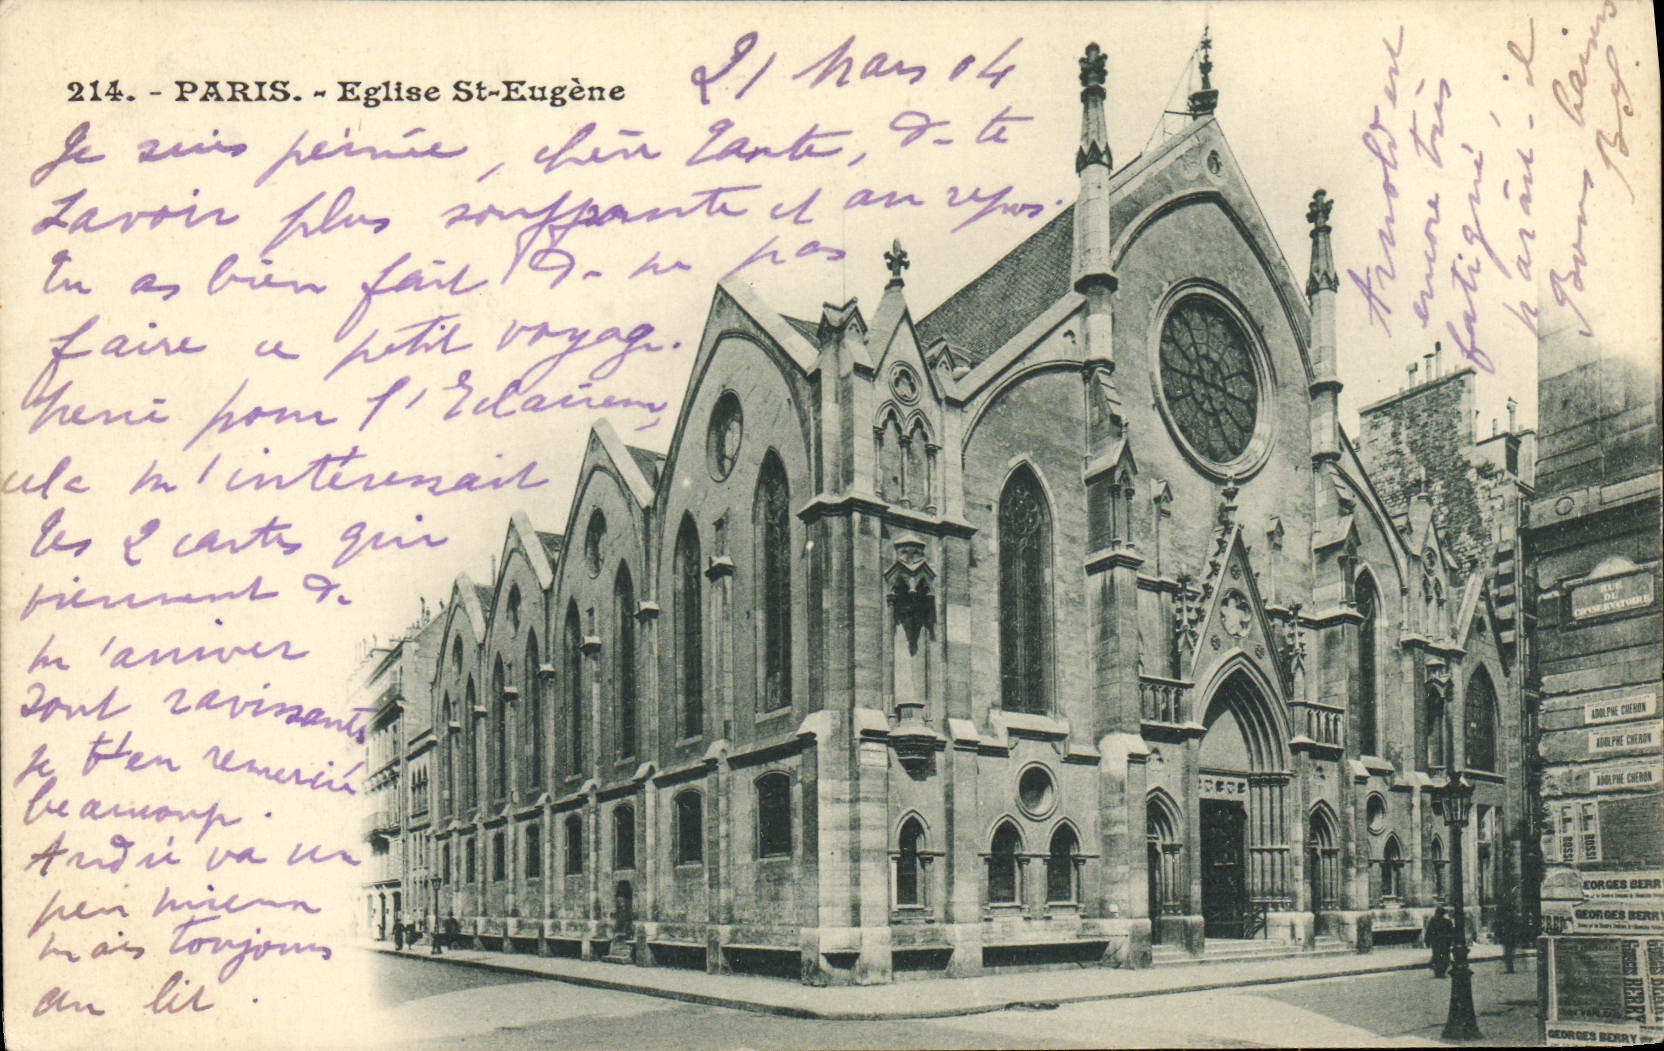 214. - PARIS. - Eglise St-Eugène
21 Mars 04
Je suis peinée, chère Tante, de te
savoir plus souffrante et au repos.
Tu as bien fait de ne pas
faire ce petit voyage.
Merci pour l'Eclaireur,
cela m'intéressait
Les 2 cartes qui
viennent de
m'arriver
sont ravissantes
je t'en remercie
beaucoup.
André va un
peu mieux
mais toujours
au lit.
Arnold est
encore très
fatigué
paraît-il
Bons baisers
RUE
DU
CONSERVATOIRE
ADOLPHE CHERON
ADOLPHE CHERON
ADOLPHE CHERON
ROSSI
GEORGES BERRY
GEORGES BERRY
BERRY
GEORGES BERRY